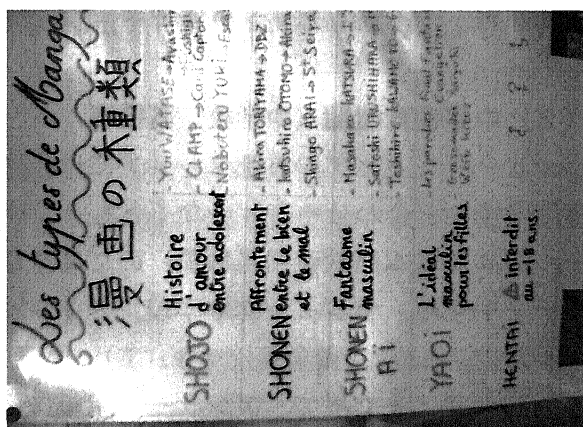 Les types de Manga
漫画の種類
SHOJO
Histoire
d'amour
entre adolescent
- Yuu WATASE → Ayashi
- CLAMP → Card Captor
Nobuteru YUKI → Esca
SHONEN
Affrontement
entre le bien
et le mal
- Akira TORIYAMA → DBZ
- Katsuhiro OTOMO → Akira
- Shingo ARAI → St Seiya
SHONEN
AI
Fantasme
masculin
- Masakazu KATSURA → I's
- Satoshi URUSHIHARA →
- Toshihiro
YAOI
L'idéal
masculin
pour les filles
Les parodies
Evangelion
HENTAI
⚠ Interdit
au -18 ans.
? ? ?